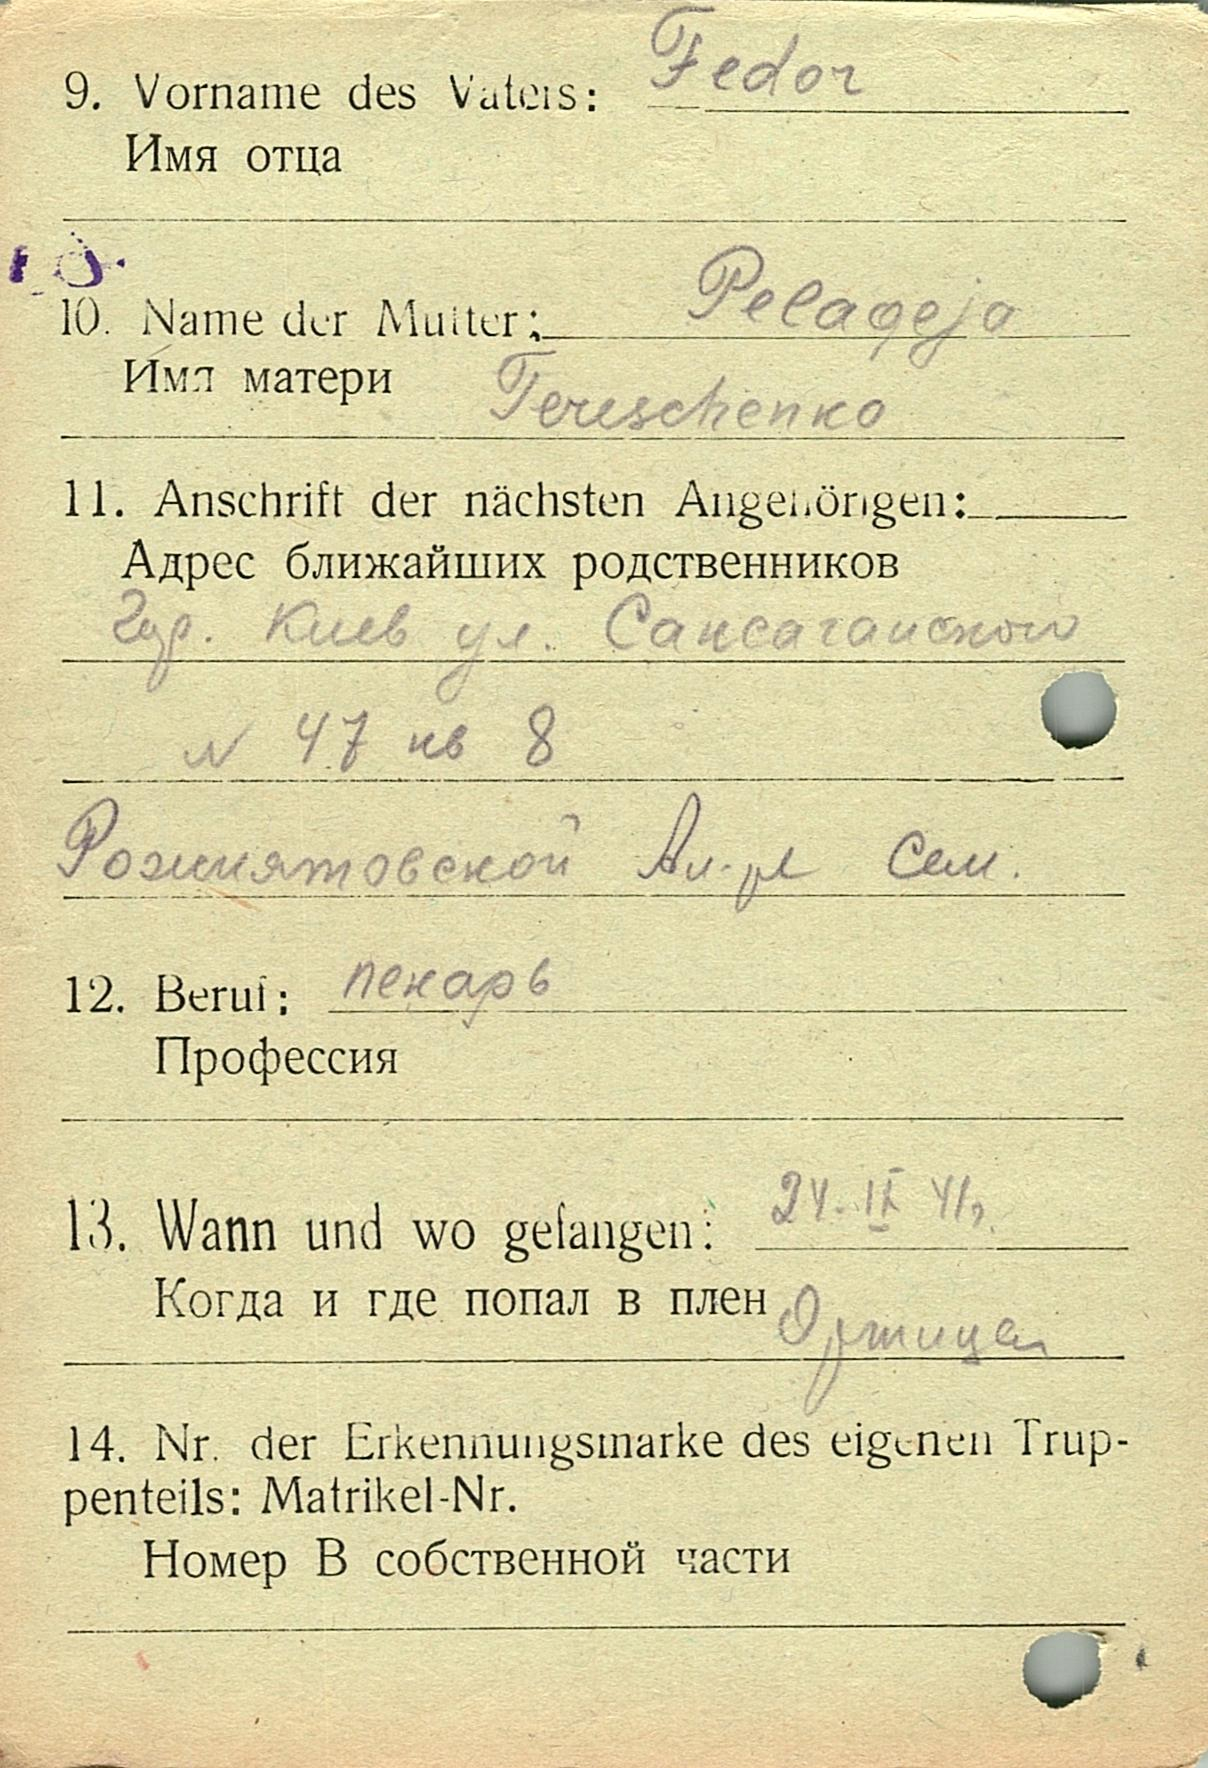 9. Vorname des Vaters: Fedor
Имя отца
10. Name der Mutter: Pelageja
Имя матери Tereschenko
11. Anschrift der nächsten Angehörigen:
Адрес ближайших родственников
Гор. Киев ул. Саксаганского
N 47 кв 8
Рожнятовской Сем.
12. Beruf: пекарь
Профессия
13. Wann und wo gefangen: 24. IX 41г.
Когда и где попал в плен Оржица
14. Nr. der Erkennungsmarke des eigenen Trup-
penteils: Matrikel-Nr.
Номер В собственной части